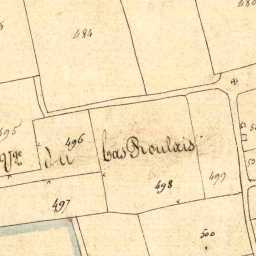 484
496
du bas Roulais
498
499
497
500